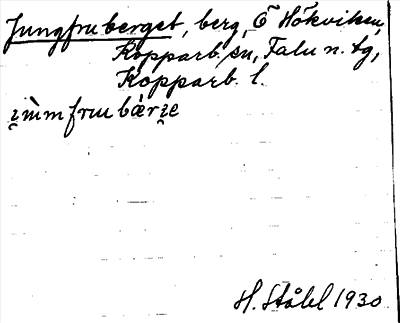 Jungfruberget, berg, Ö Hökviken,
Kopparb. sn, Falu n. tg,
Kopparb. l.
H. Ståhl 1930